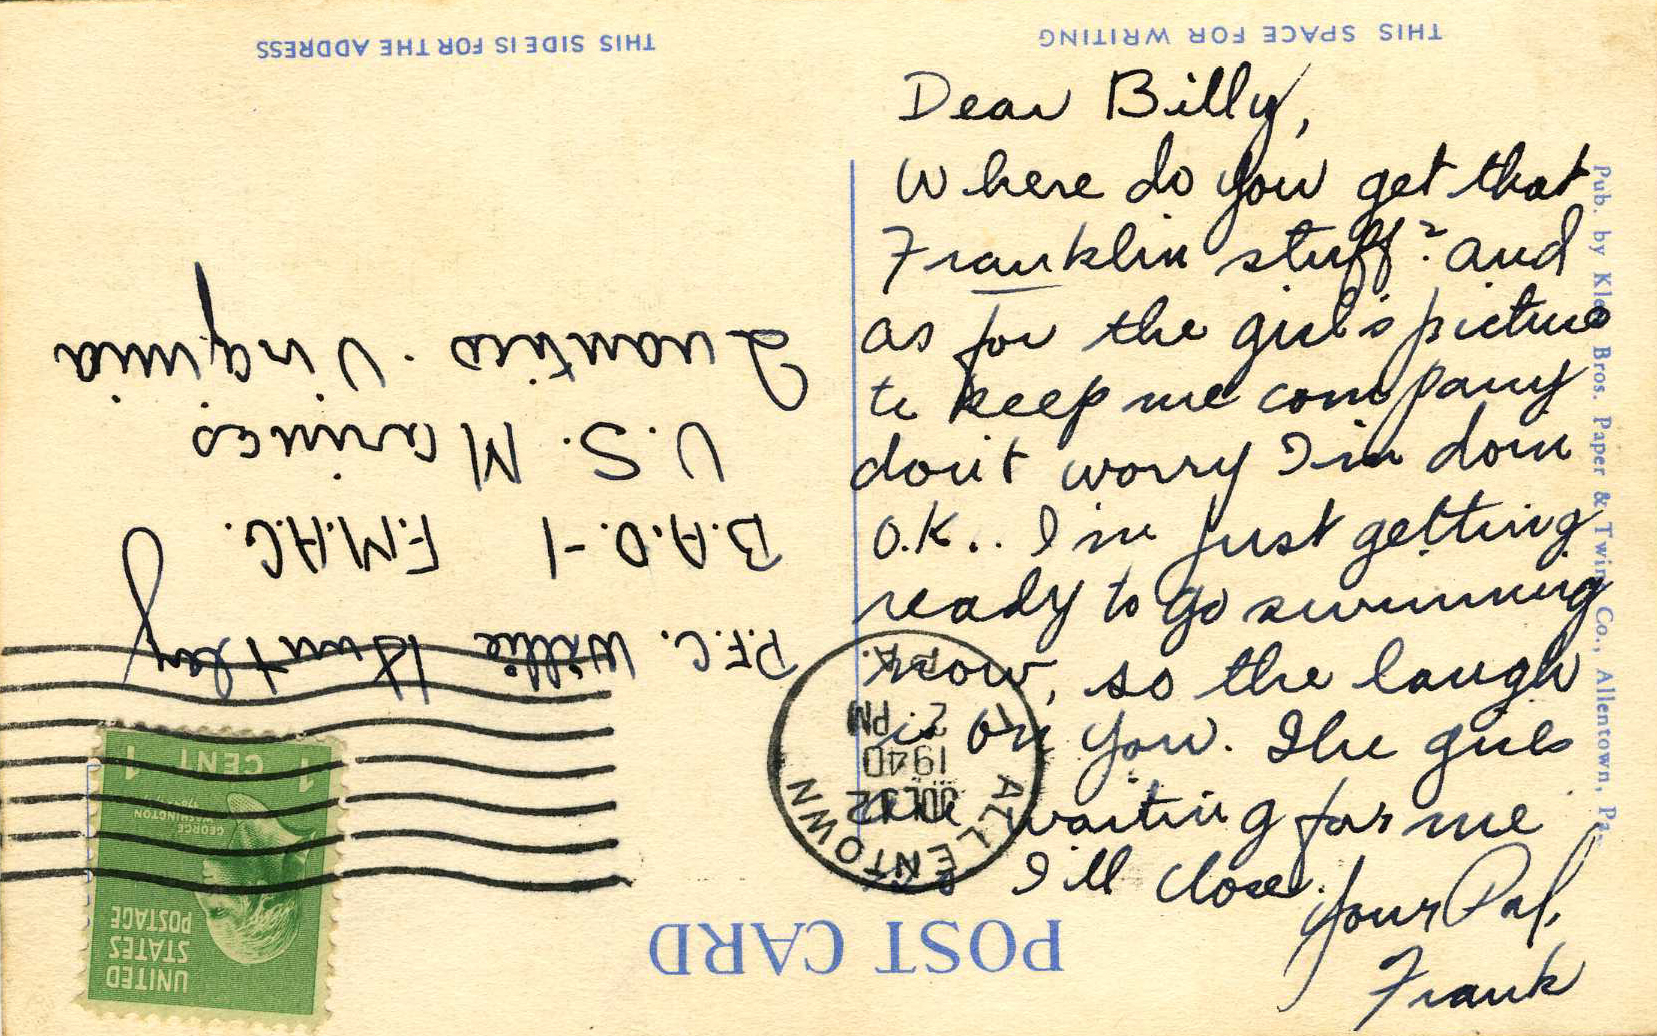 THIS SPACE FOR WRITING
Dear Billy,
Where do you get that
Franklin stuff? and
as for the girl's picture
to keep me company
don't worry I'm doin
O.K.. I'm just getting
ready to go swimming
now, so the laugh
is on you. The girls
are waiting for me
& I'll close.
Your Pal,
Frank
Pub. by Klos Bros. Paper & Twine Co., Allentown, Pa.
POST CARD
THIS SIDE IS FOR THE ADDRESS
UNITED
STATES
POSTAGE
GEORGE
WASHINGTON
1 CENT 1
ALLENTOWN
PA.
JUL 12
2 PM
1940
P.F.C. Willie Huntley
B.A.D.-1 F.M.A.G.
U.S. Marines
Quantico. Virginia